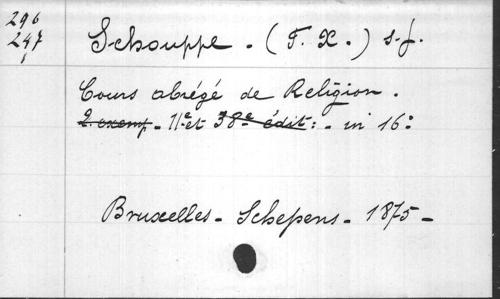 296
247
1
Schouppe. (F. X.) s.j.
Cours abrégé de Religion.
2. exemp. - 11e et 38e édit: - in 16:
Bruxelles - Schepens - 1875 -